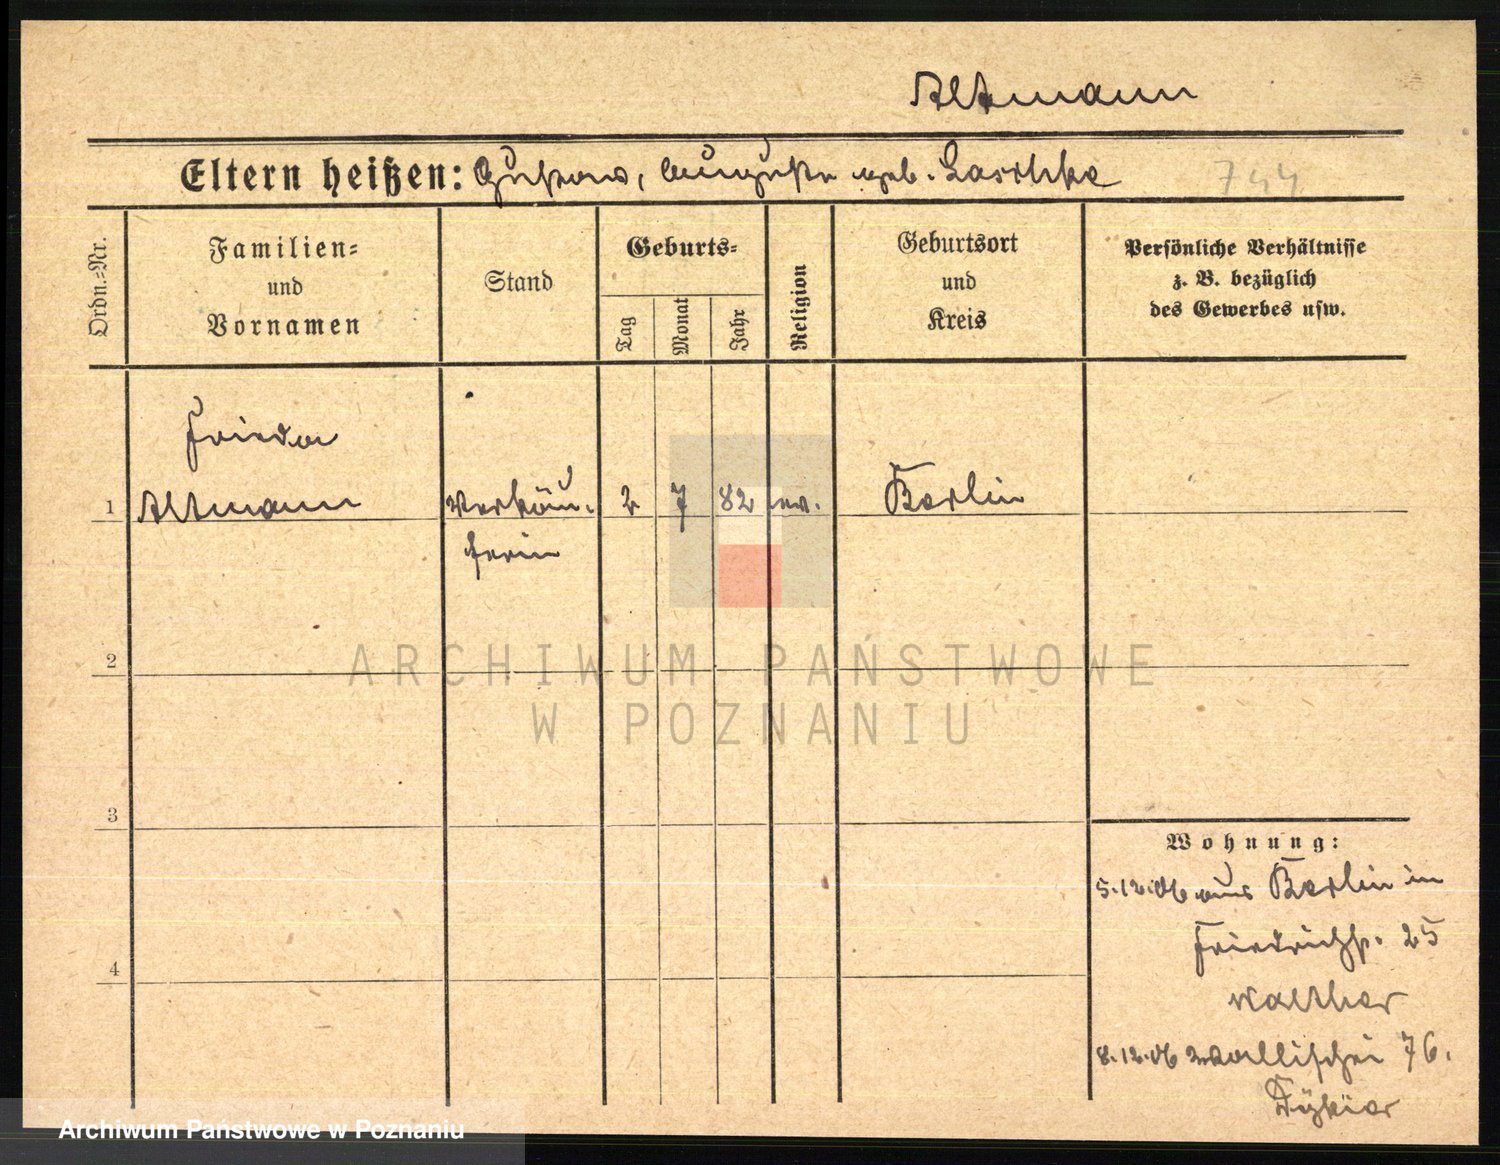 Altmann
Eltern heißen: Gustav, Auguste geb. Laschke 744
Ordn.-Nr.
Familien-
und
Vornamen
Stand
Geburts-
Tag
Monat
Jahr
Religion
Geburtsort
und
Kreis
Persönliche Verhältnisse
z. B. bezüglich
des Gewerbes usw.
Frieda
1 Altmann Verkäu- 2 7 82 ev. Berlin
ferin
ARCHIWUM PAŃSTWOWE
W POZNANIU
2
3
4
Wohnung:
5.12.06 aus Berlin in
Friedrichst. 25
Walther
8.12.06 Wallischei 76.
Archiwum Państwowe w Poznaniu